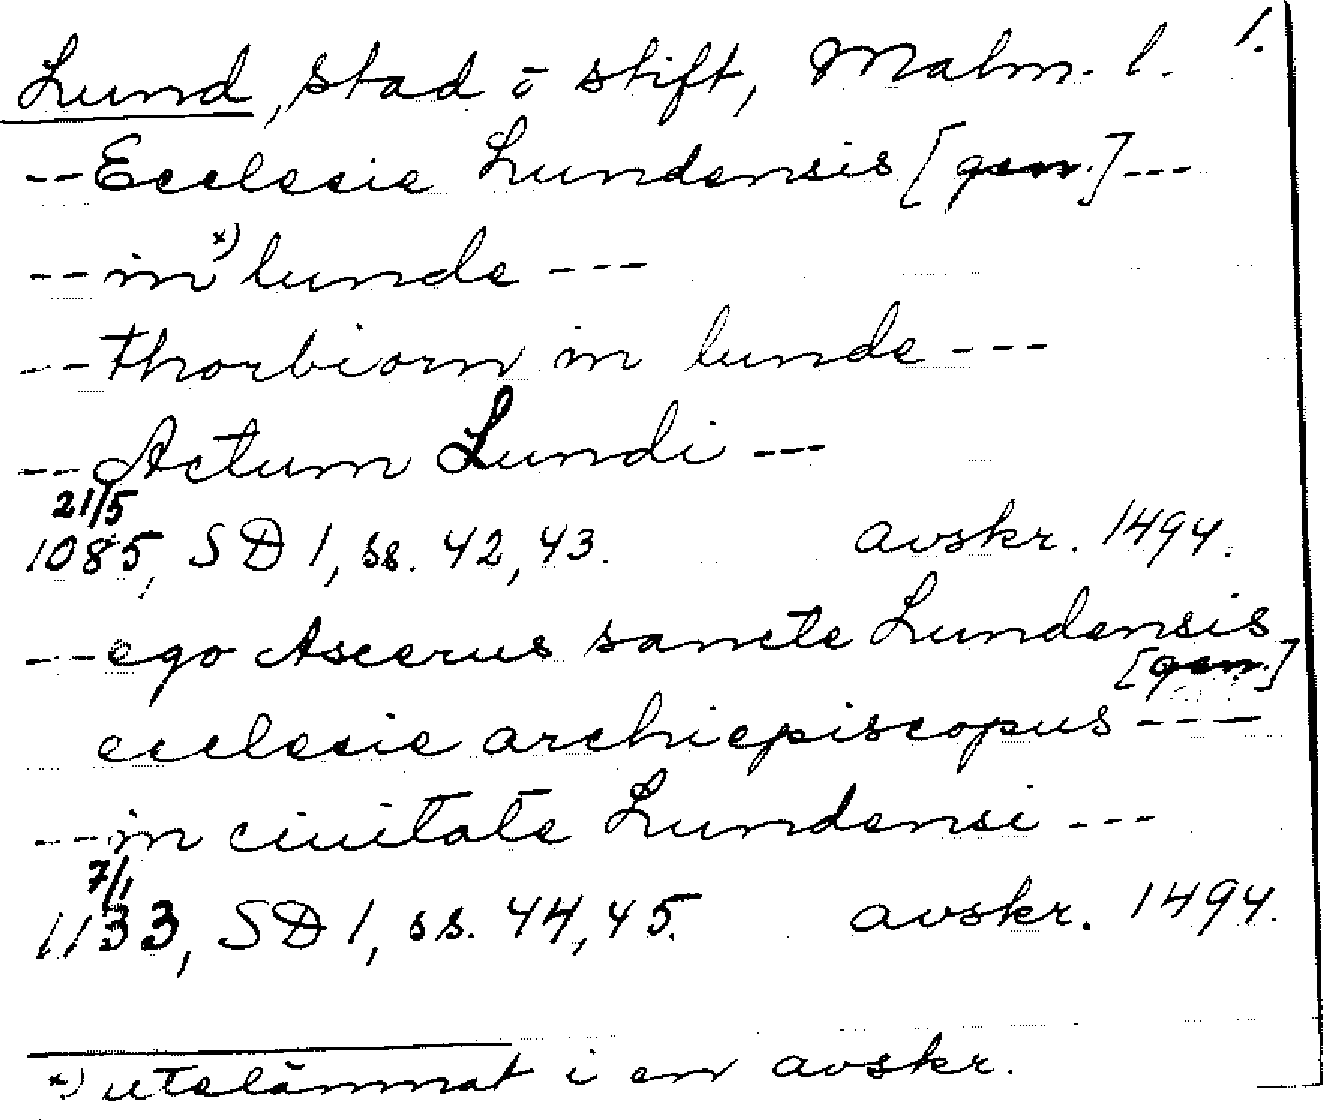 Lund, stad o stift, Malm. l. 1.
--Ecclesie Lundensis [gen.]---
--in x) lunde ---
--thorbiorn in lunde ---
--Actum Lundi ---
21/5
1085, SD 1, ss. 42, 43. avskr. 1494.
---ego Ascerus sancte Lundensis
[gen.]
ecclesie archiepiscopus ---
---in ciuitate Lundensi ---
7/1
1133, SD 1, ss. 44, 45. avskr. 1494.
x) utelämnat i en avskr.